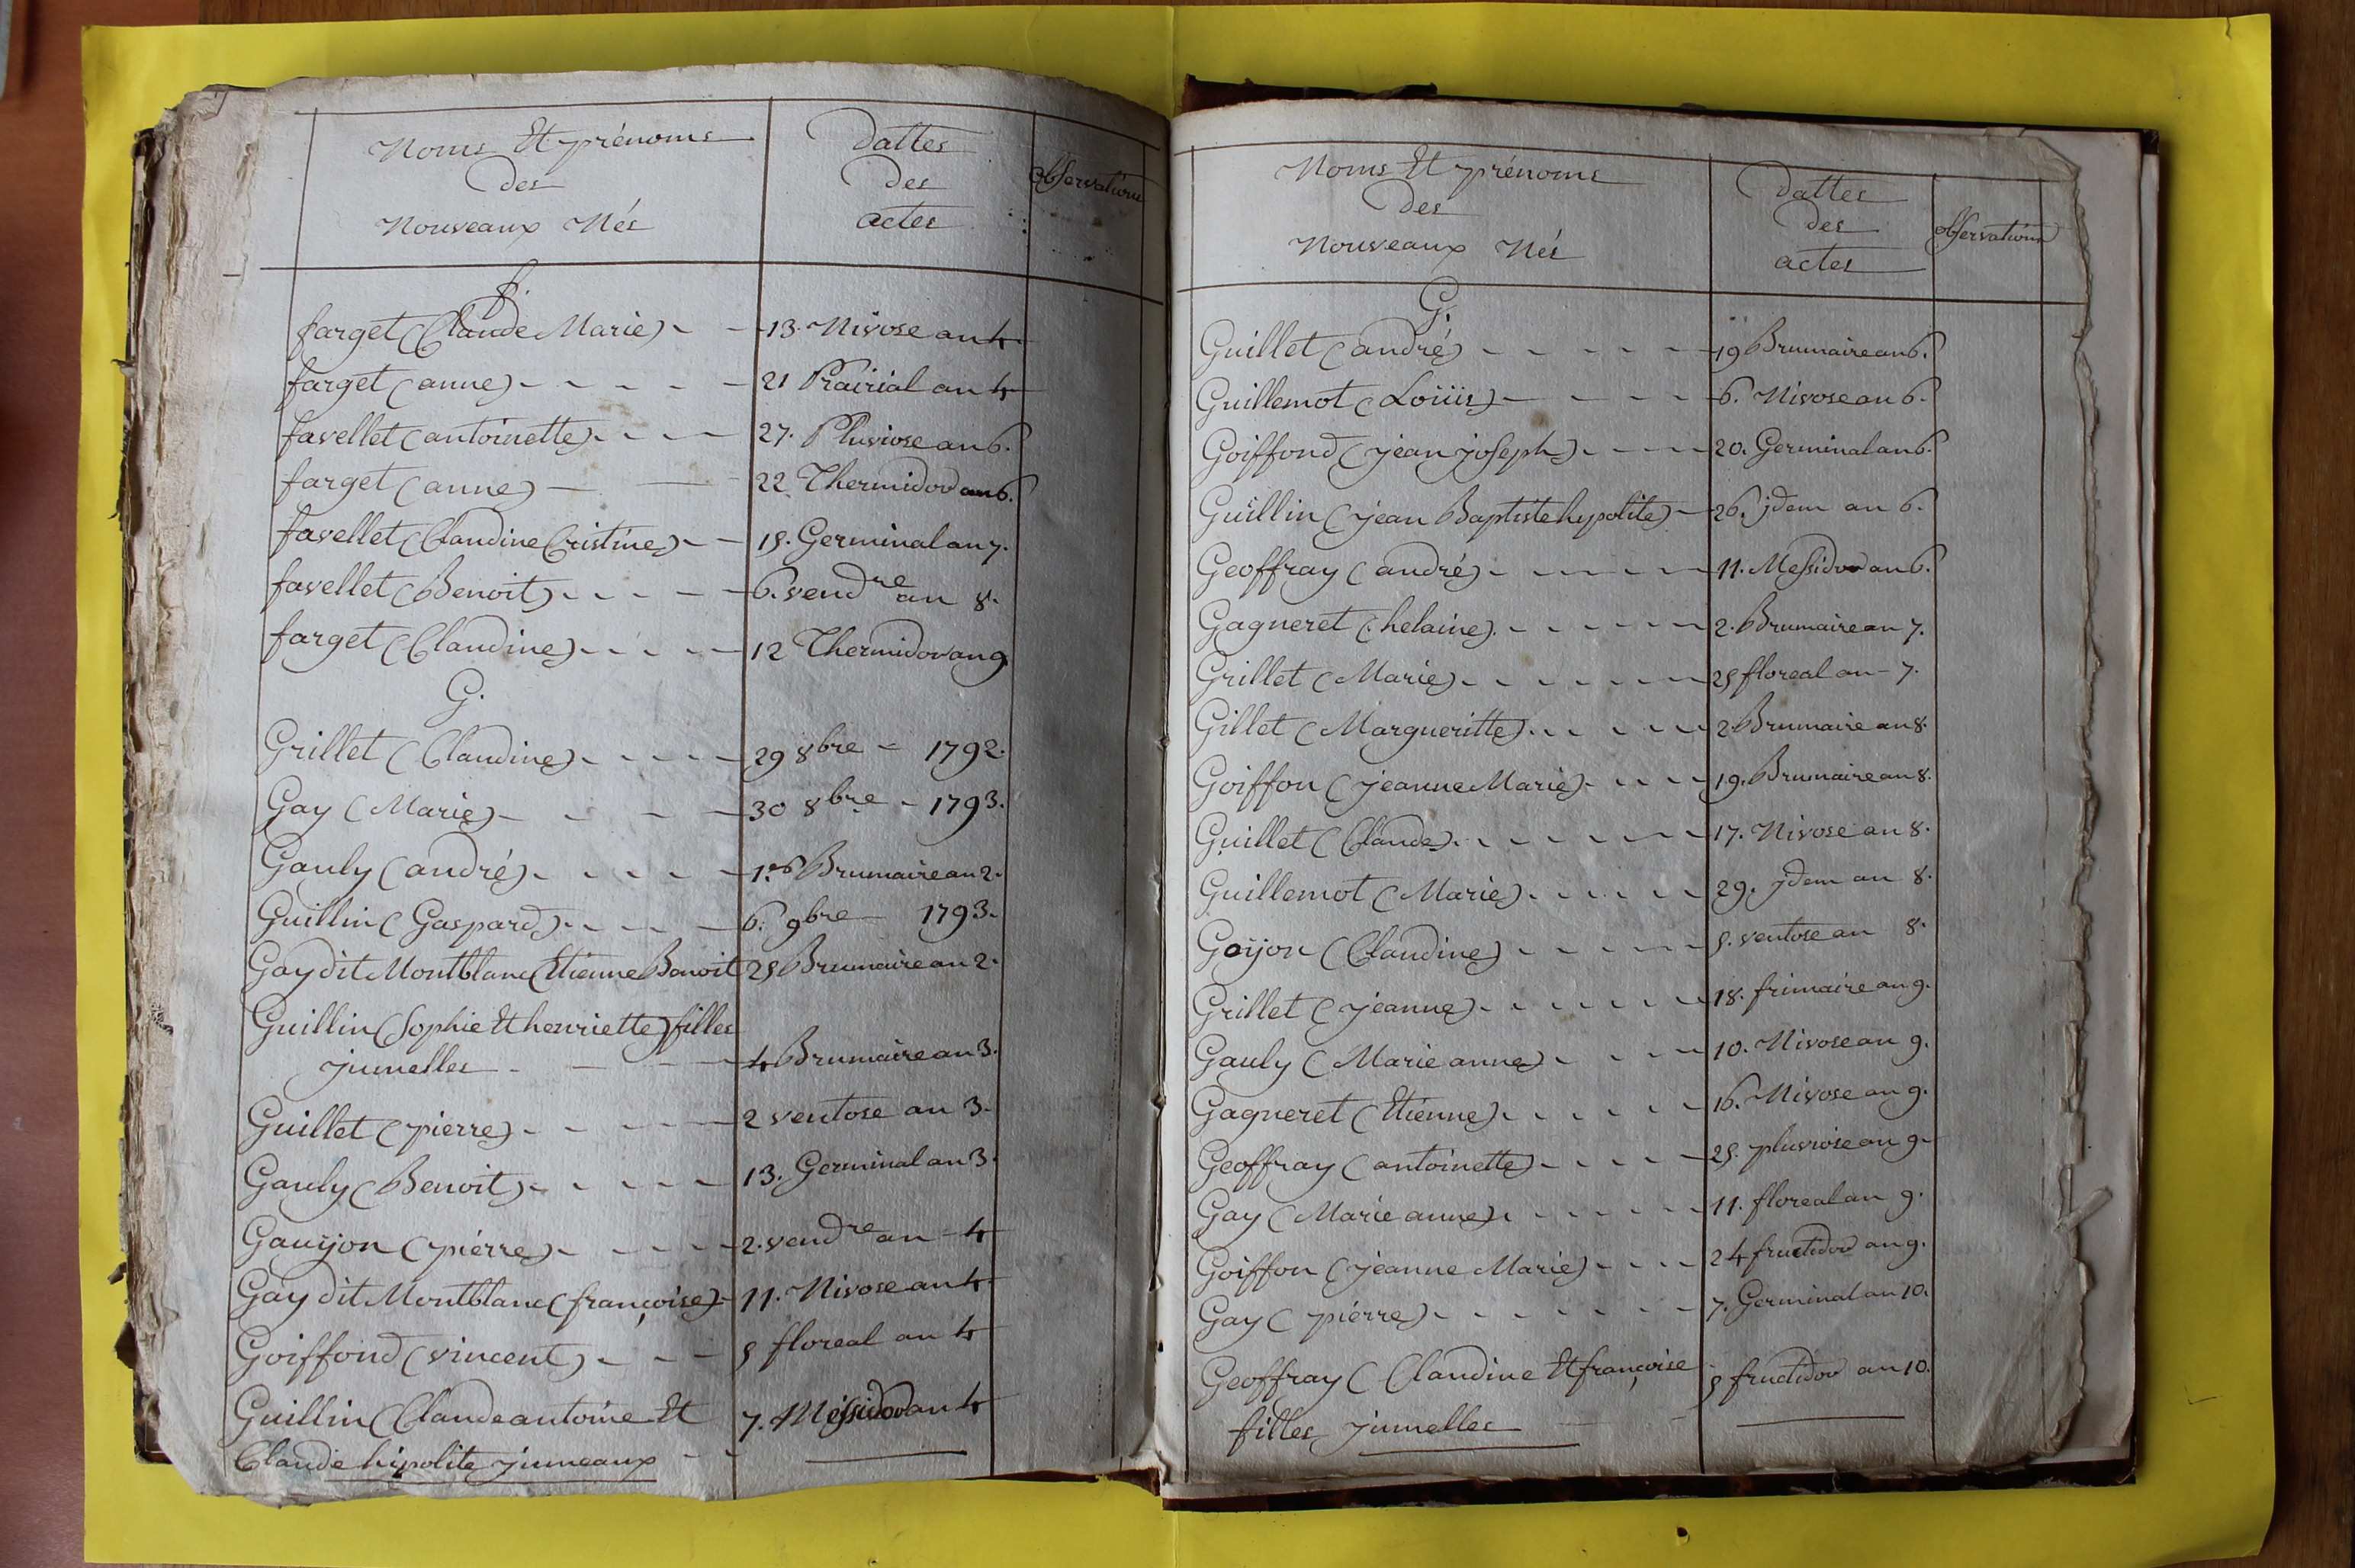 Noms Et prénoms
des
Nouveaux Nés
Dattes
des
actes
observations
f.
farget (Claude Marie) 13. Nivose an 4
farget (anne) 21 Prairial an 4
favellet (antoinette) 27. Pluviose an 6.
farget (anne) 22 Thermidor an 6.
favellet (Claudine Cristine) 15. Germinal an 7.
favellet (Benoit) 6. vendre an 8.
farget (Claudine) 12 Thermidor an 9
G.
Grillet (Claudine) 29 8bre 1792.
Gay (Marie) 30 8bre 1793.
Gauly (andré) 1er Brumaire an 2.
Guillin (Gaspard) 6. 9bre 1793.
Gay dit Montblanc (Etienne Benoit 25 Brumaire an 2.
Guillin (Sophie Et henriette) filles
jumelles 4 Brumaire an 3.
Guillet (pierre) 2 ventose an 3.
Gauly (Benoit) 13. Germinal an 3.
Gauyon (pierre) 2. vendre an 4
Gay dit Montblanc (françoise) 11. Nivose an 4
Goiffond (vincent) 5 floreal an 4
Guillin (Claude antoine Et 7. Messidor an 4
Claude hipolite jumeaux
Noms Et prénoms
des
Nouveaux Nés
Dattes
des
actes
observations
G.
Guillet (andré) 19 Brumaire an 6.
Guillemot (Loüis) 6. Nivose an 6.
Goiffond (jean joseph) 20. Germinal an 6.
Guillin (jean Baptiste hypolite) 26. jdem an 6.
Geoffray (andré) 11. Messidor an 6.
Gagneret (helaine) 2. Brumaire an 7.
Grillet (Marie) 25 floreal an 7.
Gillet (Margueritte) 2 Brumaire an 8.
Goiffon (jeanne Marie) 19. Brumaire an 8.
Guillet (Claude) 17. Nivose an 8.
Guillemot (Marie) 29. jdem an 8.
Goyon (Claudine) 5. ventose an 8.
Grillet (jeanne) 18. frimaire an 9.
Gauly (Marie anne) 10. Nivose an 9.
Gagneret (Etienne) 16. Nivose an 9.
Geoffray (antoinette) 25. pluviose an 9.
Gay (Marie anne) 11. floreal an 9.
Goiffon (jeanne Marie) 24 fructidor an 9.
Gay (pierre) 7. Germinal an 10.
Geoffray (Claudine Et françoise 5 fructidor an 10.
filles jumelles